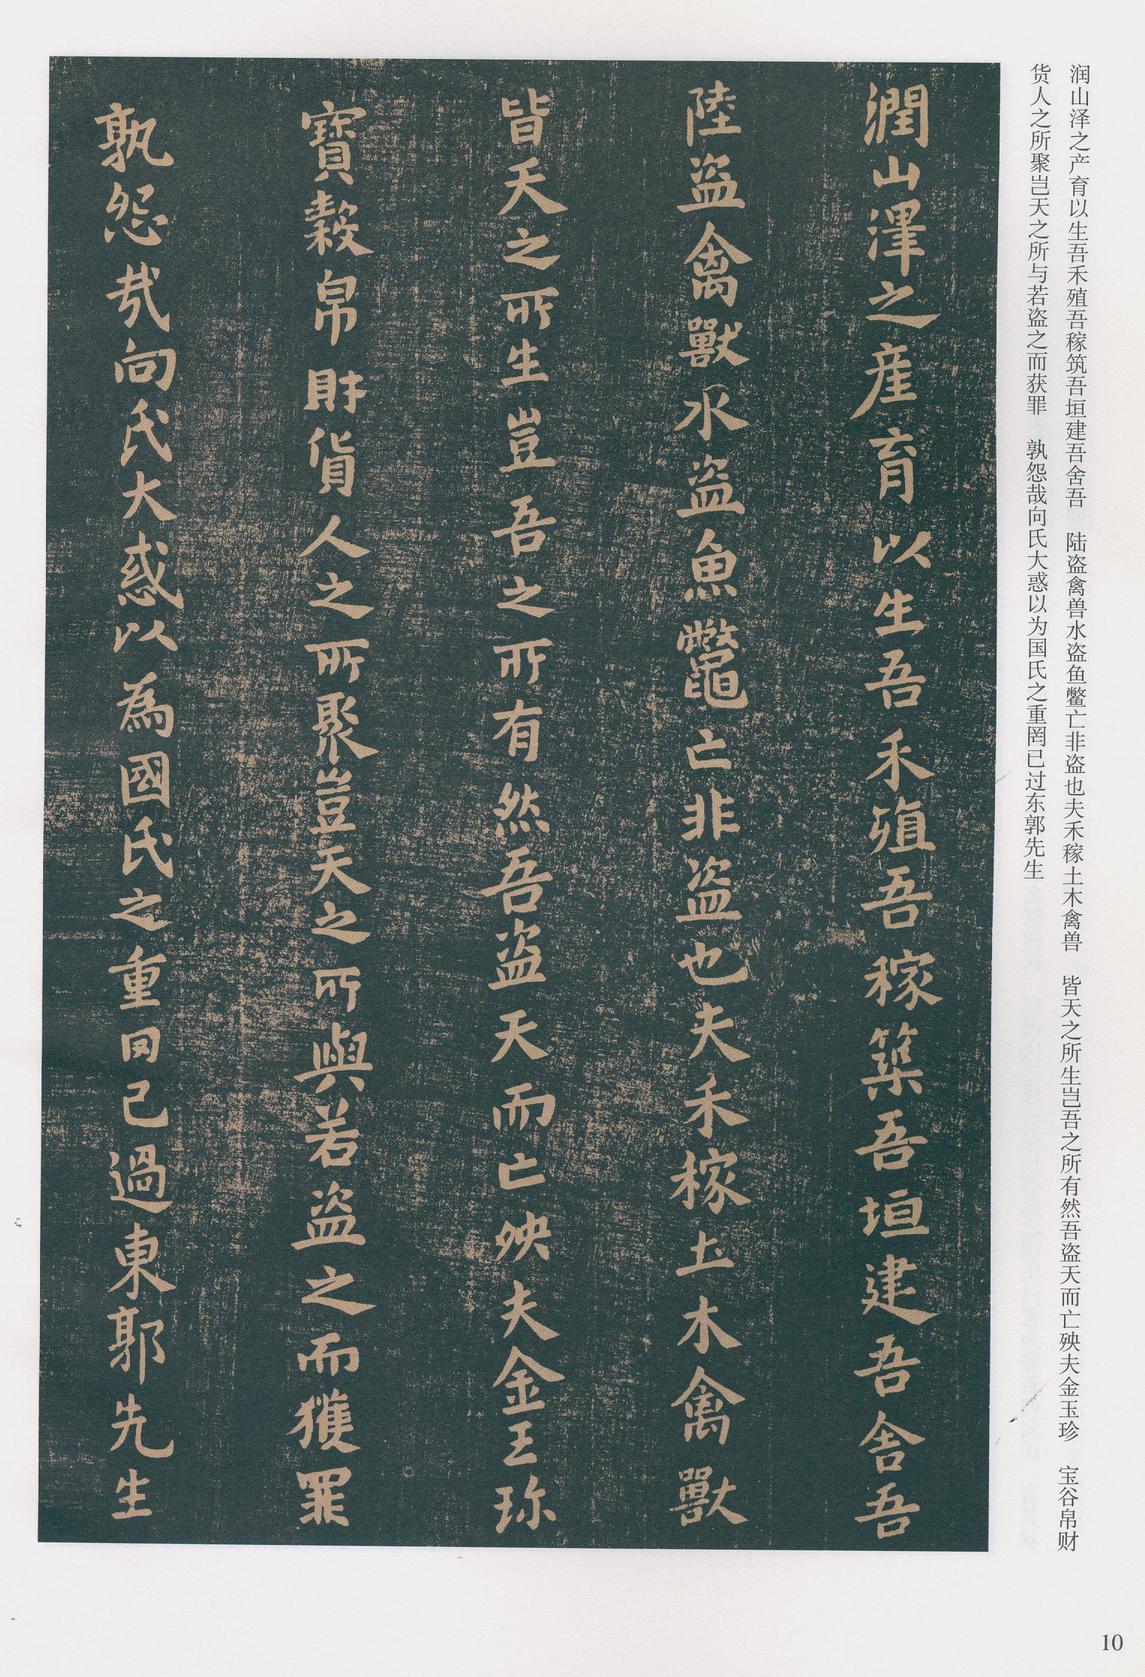 润山泽之产育以生吾禾殖吾稼筑吾垣建吾舍吾　陆盗禽兽水盗鱼鳖亡非盗也夫禾稼土木禽兽　皆天之所生岂吾之所有然吾盗天而亡殃夫金玉珍　宝谷帛财
货人之所聚岂天之所与若盗之而获罪　孰怨哉向氏大惑以为国氏之重罔已过东郭先生
潤山澤之產育以生吾禾殖吾稼築吾垣建吾舍吾
陸盗禽獸水盗魚鼈亡非盗也夫禾稼土木禽獸
皆天之所生豈吾之所有然吾盗天而亡殃夫金玉珎
寶穀帛財貨人之所聚豈天之所與若盗之而獲罪
孰怨哉向氏大惑以為國氏之重罔已過東郭先生
10